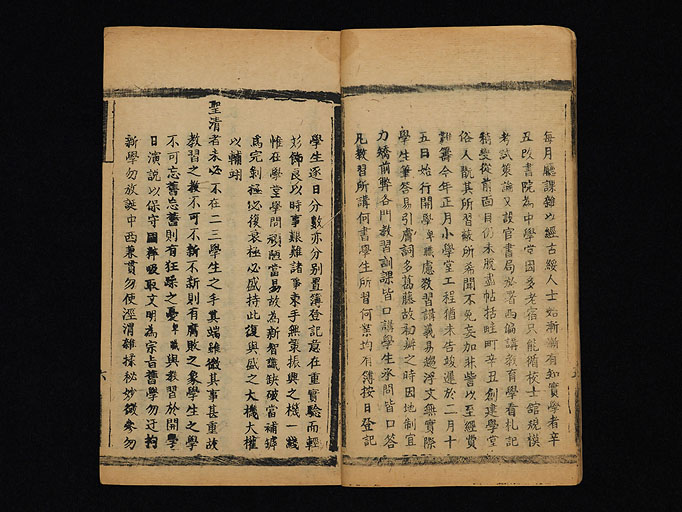 每月廳課雜以經古綏人士始漸漸有知實學者辛
丑改書院為中學堂因多老宿只能循校士館規模
考試策論又設官書局於署西編講教育學看札記
稍變從前面目仍未脫盡帖括畦町辛丑創建學堂
俗人覩其所習藏所希聞不免妄加非訾以至經費
艱籌今年正月小學堂工程猶未告竣遲於二月十
五日始行開學卑職慮教習講義易趨浮文無實際
學生筆答易引膚詞多葛藤故初辦之時因地制宜
力矯前弊各門教習訓課皆口講學生承問皆口答
凡教習所講何書學生所習何業均有簿按日登記
學生逐日分數亦分別置簿登記意在重實驗而輕
彷彿良以時事艱難諸事束手無策振興之機一綫
惟在學堂學問頑陋當易故為新智識缺破當補罅
為完剝極必復衰極必盛持此復與盛之大機大權
以輔翊
聖清者未必不在二三學生之手其端雖微其事甚重故
教習之教不可不新不新則有腐敗之象學生之學
不可忘舊忘舊則有狂躁之憂卑職與教習於開學
日演說以保守國粹吸取文明為宗旨舊學勿迂拘
新學勿放誕中西兼貫勿使涇渭雜糅秘妙徵參勿